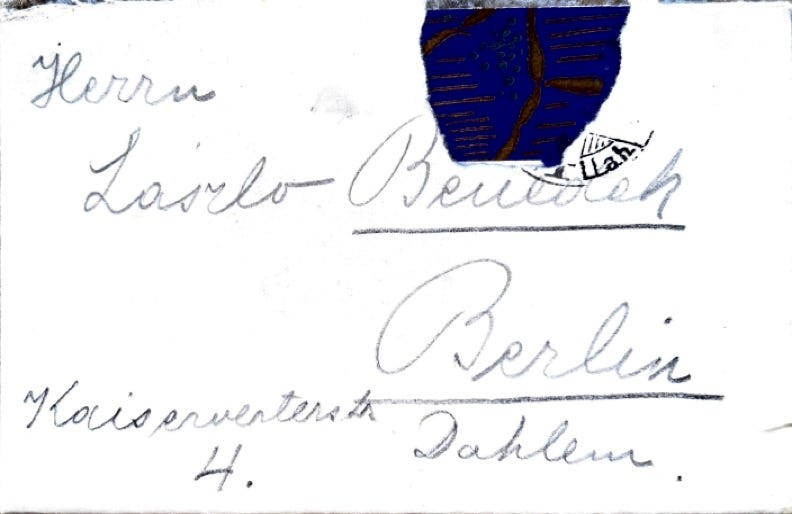 Herrn
László Benedek
Berlin
Kaiserverterstr
4.
Dahlem.